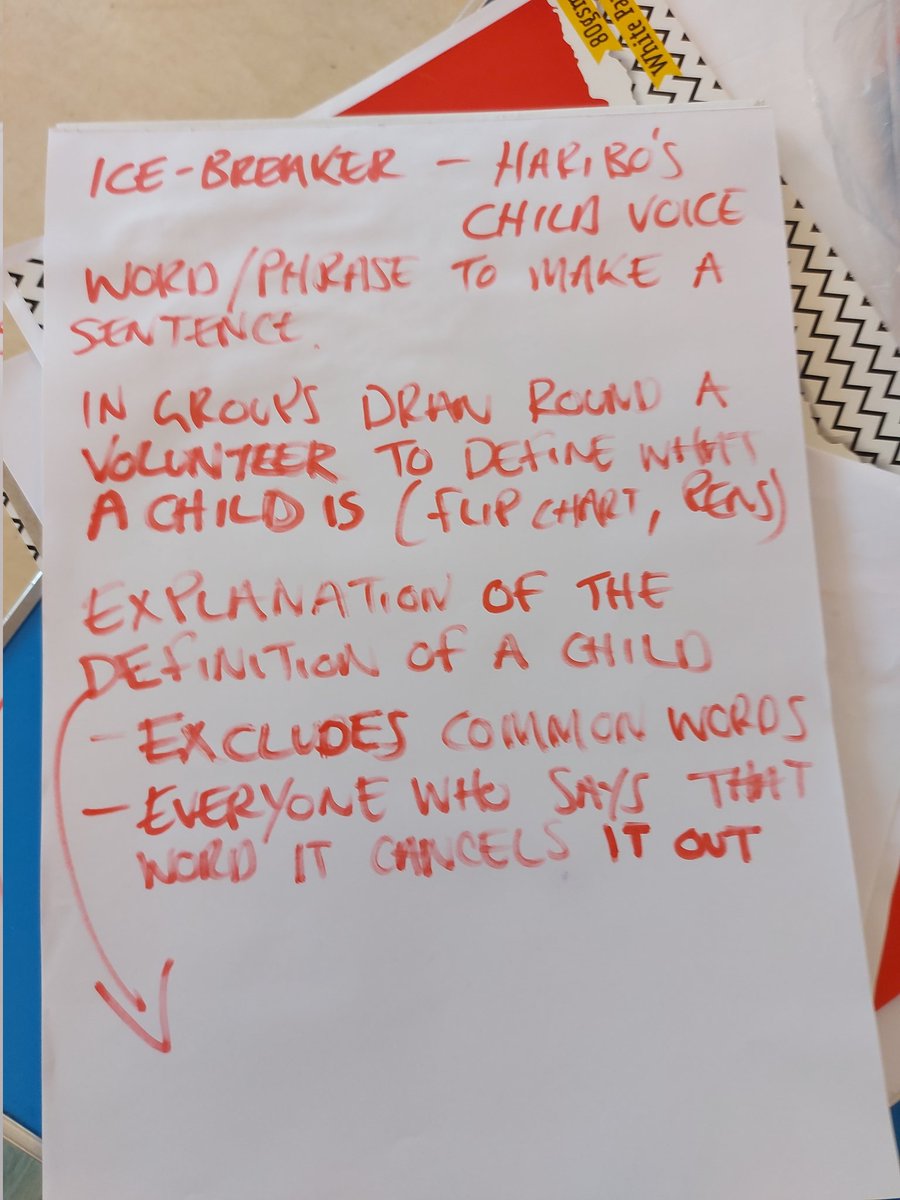 80gsm
White Pa
ICE-BREAKER - HARIBO'S
CHILD VOICE
WORD/PHRASE TO MAKE A
SENTENCE.
IN GROUPS DRAW ROUND A
VOLUNTEER TO DEFINE WHAT
A CHILD IS (FLIP CHART, PENS)
EXPLANATION OF THE
DEFINITION OF A CHILD
- EXCLUDES COMMON WORDS
- EVERYONE WHO SAYS THAT
WORD IT CANCELS IT OUT